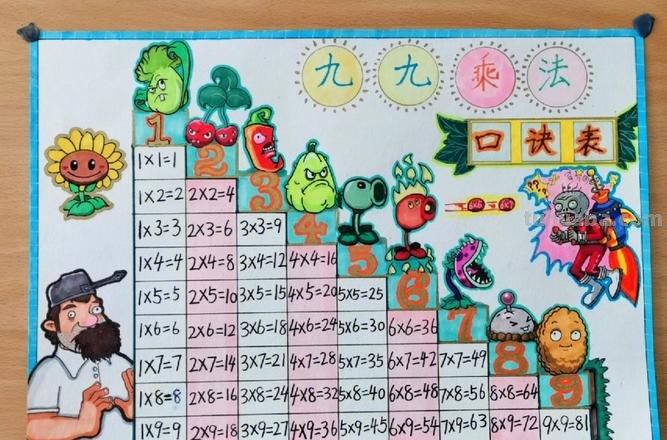 九九乘法
口诀表
1
1×1=1 2
1×2=2 2×2=4 3
1×3=3 2×3=6 3×3=9 4
1×4=4 2×4=8 3×4=12 4×4=16 5
1×5=5 2×5=10 3×5=15 4×5=20 5×5=25 6
1×6=6 2×6=12 3×6=18 4×6=24 5×6=30 6×6=36 7
1×7=7 2×7=14 3×7=21 4×7=28 5×7=35 6×7=42 7×7=49 8
1×8=8 2×8=16 3×8=24 4×8=32 5×8=40 6×8=48 7×8=56 8×8=64 9
1×9=9 2×9=18 3×9=27 4×9=36 5×9=45 6×9=54 7×9=63 8×9=72 9×9=81